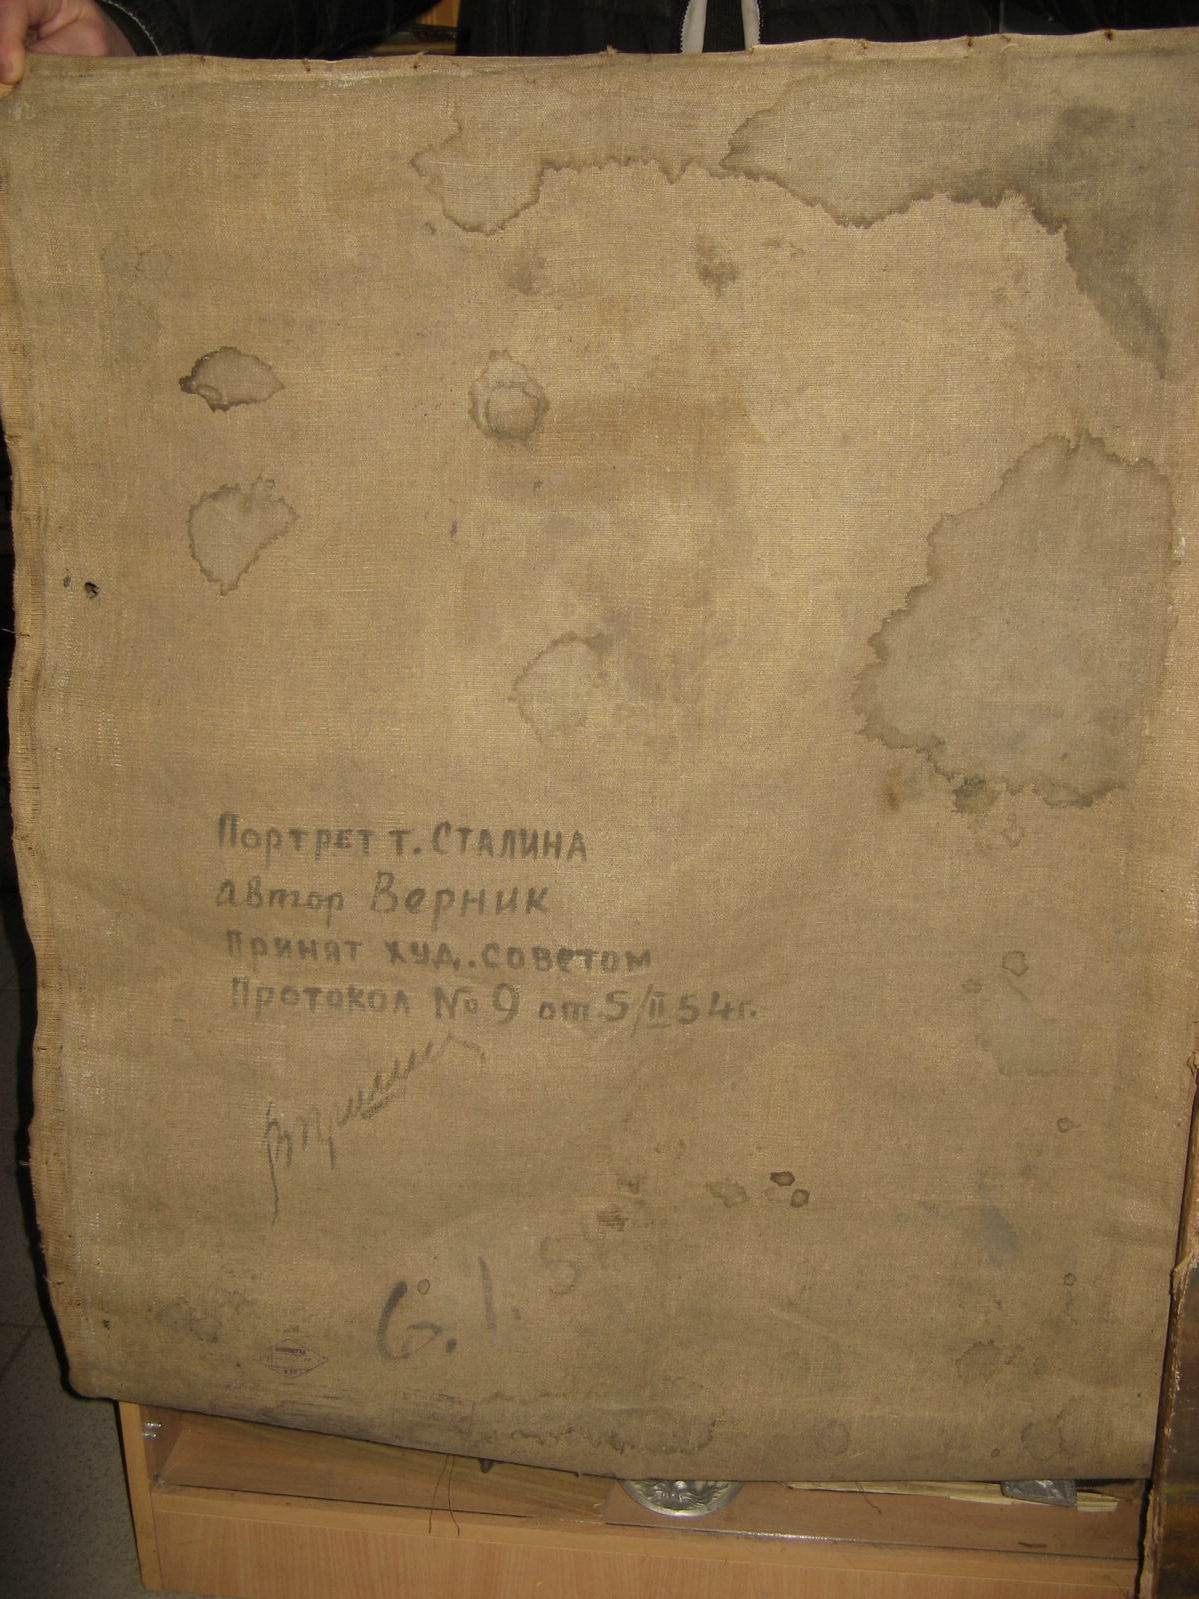 Портрет т. СТАЛИНА
автор Верник
Принят худ. советом
Протокол № 9 от 5/II 54г.
6. 1. 5